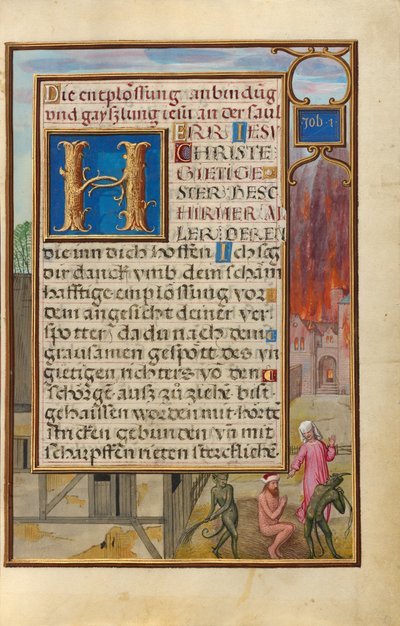 Die entplössung anbindūg
vnd gayszlung iesu an der saul
HERR IESV
CHRISTE
GIETIGE
STER BESC
HIRMER A
LER DEREN
die inn dich hoffen Ich sag
dir danck vmb dein scham
hafftige emplössung vor
dem angesicht deiner ver
spotter da du nach dem
grausamen gespött des vn
gietigen richters vō den
schörgē ausz zů ziehē bist
gehaissen worden mit hörtē
stricken gebunden vn̄ mit
scharpffen rieten sterckliche
Job·1·